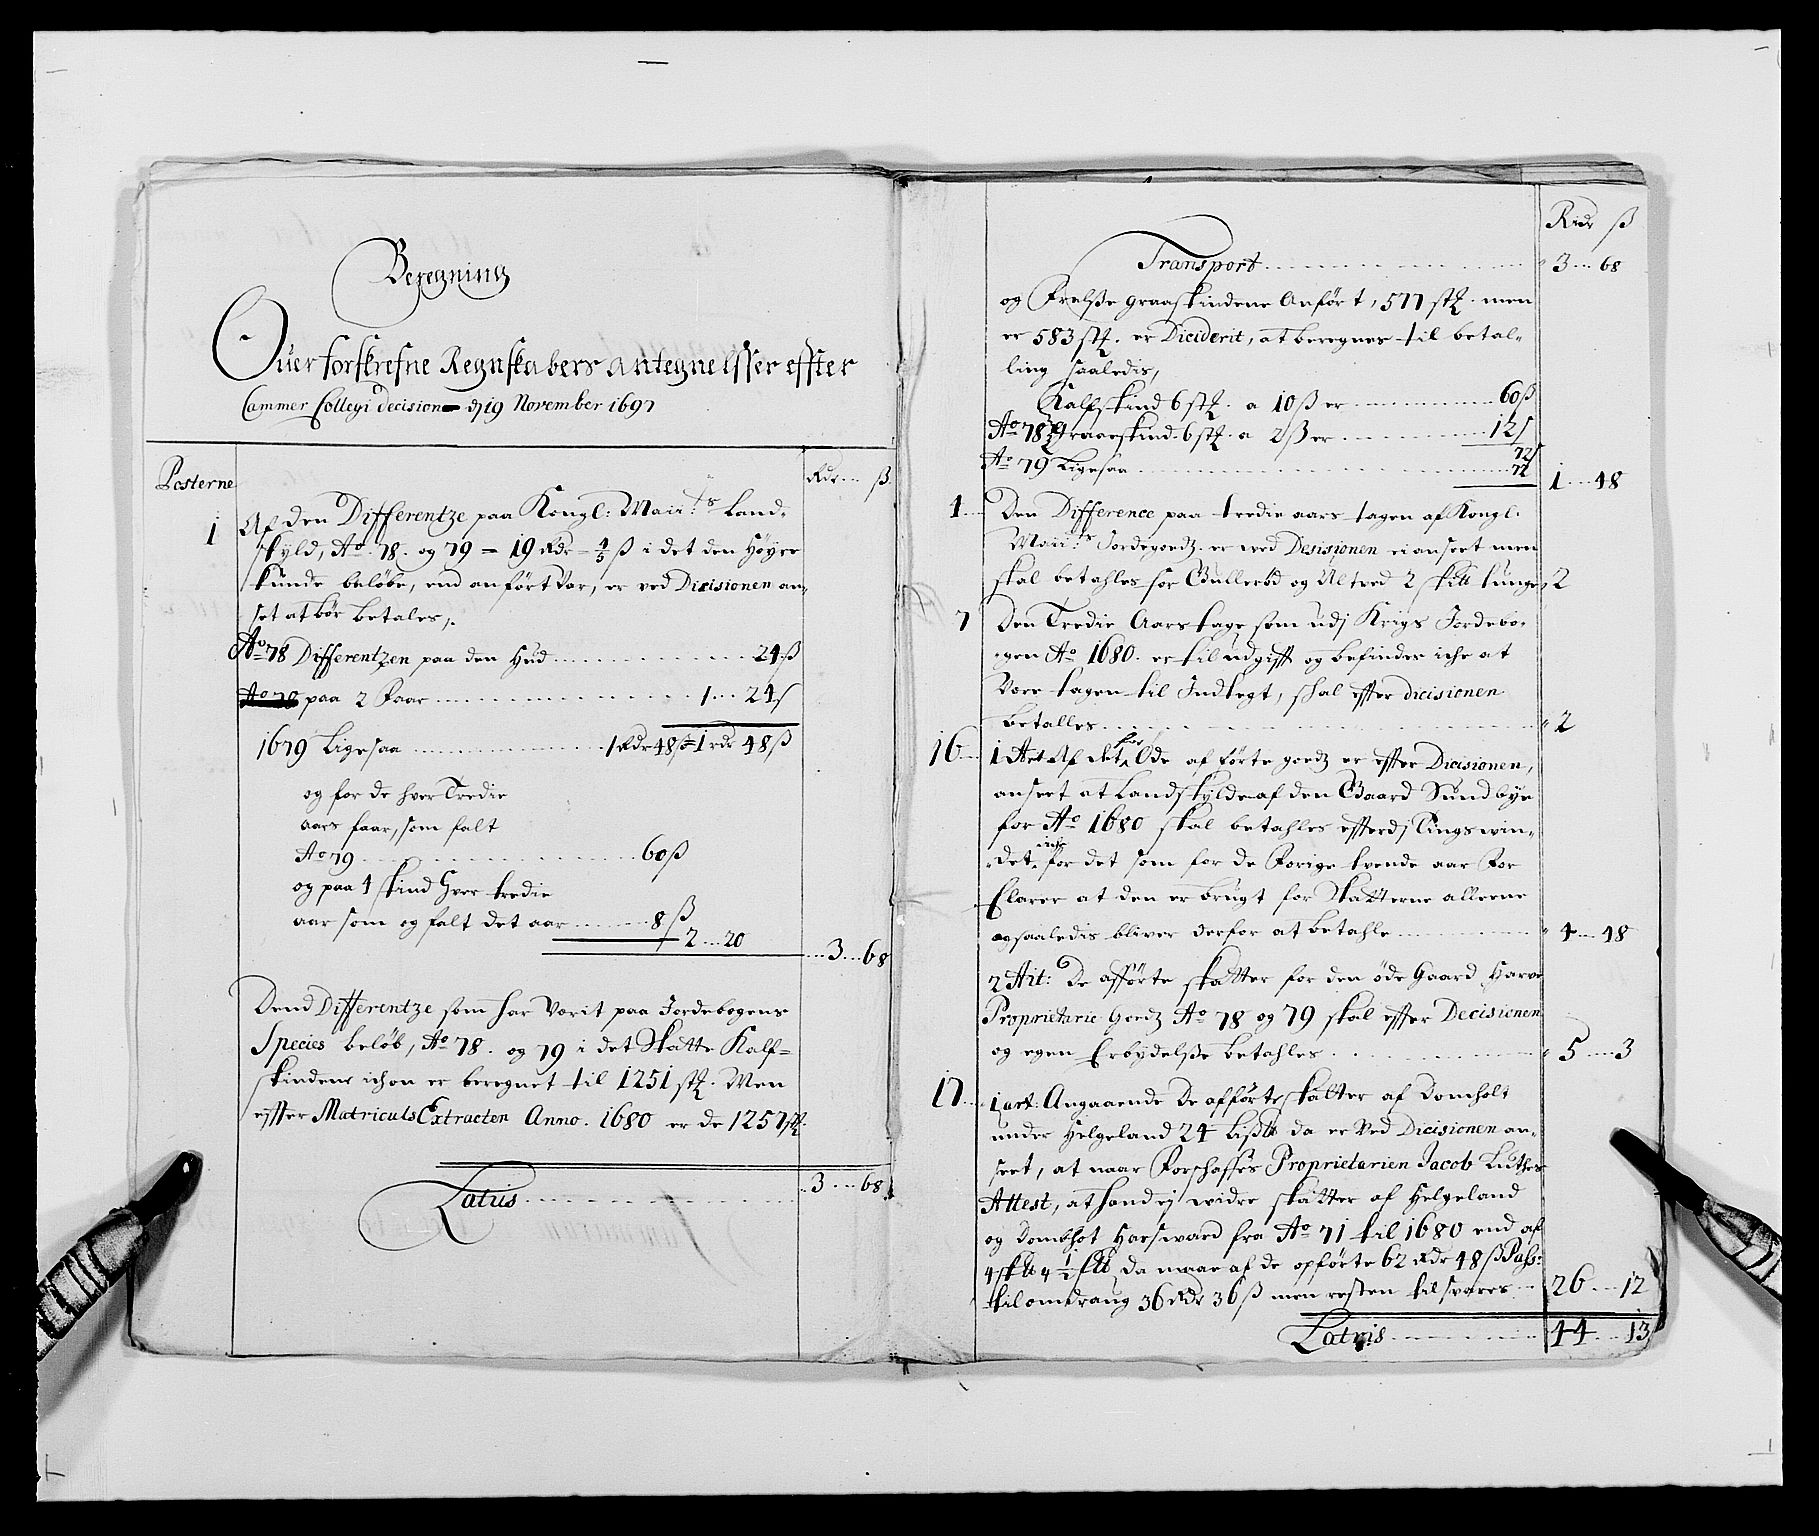 Beregning
Ofuer forskrefne Regnskabers Antegnelsser effter
Cammer Collegi decision d 19 November 1697
Posterne
Rdr ... ß
1 Af den Differentze paa Kongl: Maii:ts Land-
skyld, Ao. 78. og 79 = 19 Rdr - 4/5 ß i det den Høyre
kunde beløbe, end anført var, er ved Dicisionen an-
set at bør betales,
Ao 78 Differentzen paa den Hud ... 24 ß
paa 2 Faar ... 1 ... 24 ß
1679 Ligesaa ... 1 Rdr 48 ß = 1 rdr 48 ß
og for de hver Tredie
aars faar, som falt
Ao 79 ... 60 ß
og paa 4 skind hver tredie
aar som og falt det aar ... 8 ß
2 ... 20
... 3 ... 68
Dend Differentze som har Værit paa Jordebogens
Species beløb, Ao 78. og 79 i det Skatte Kalf-
skindene ichon er beregnet til 1251 stk. Men
effter Matriculs Extracten Anno. 1680 er de 1257 stk.
Latus ... 3 ... 68
Rdr ß
Transport ... 3 ... 68
og Frelsse graaskindene Anført, 577 stk. men
er 583 stk. er Diciderit, at beregnes til betal-
ling saaledis,
Kalfskind 6 stk. a 10 ß er ... 60 ß
Ao 78 Graaeskind 6 stk. a 2 ß er ... 12 ß
72
Ao 79 Ligesaa ... 72
1 ... 48
4 Den Difference paa tredie aars tagen af Kongl.
Maii:ts Jordegodz. er wed Desisionen ei anseet men
skal betahles for Bullerød og Altved 2 skill tunge 2
7 Den Tredie Aars tage som udj Krigs Jordebo-
gen Ao 1680. er til udgifft og befindes iche at
Være tagen til Indtegt, skal effter dicisionen
betalles ... 2
16 1 Art Af det for Øde af førte godz er effter Dicisionen,
anseet at Landskylden af den Gaard Sundbye
for Ao 1680 skal betahles efterdj Tingswin-
det iche for det som for de Forige tvende aar For
Clarer at den er brugt for Skatterne allerne
og saaledis bliver derfor at betahle ... 4 ... 48
2 Ait: De afførte skatter for den øde Gaard Harve
Proprietarie Godz Ao 78 og 79 skal effter Decisionen
og egen Erbydelsse betahles ... 5 ... 3
17 1 art: Angaaende De afførte skatter af Domholt
under Helgeland 24 Lißlb da er Ved Dicisionen an-
seet, at naar Forschaffes Proprietarien Jacob Luthes
Attest, at hand ej widre skatter af Helgeland
og Domhot Hars ward fra Ao 71 til 1680 end af
da maae af de opførte 62 Rdr 48 ß Pass:
til omdrang 36 Rdr 36 ß men resten til svares ... 26 ... 12
Latus ... 44 ... 13